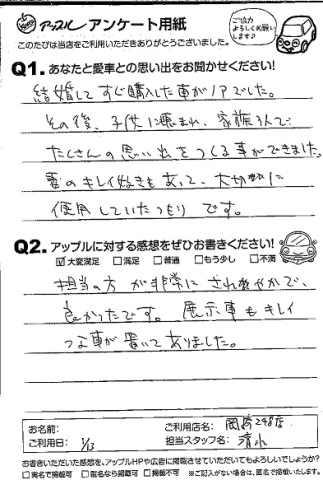 アップル アンケート用紙
このたびは当店をご利用いただきありがとうございました。
ご協力
よろしくお願い
します♪
Q1. あなたと愛車との思い出をお聞かせください!
結婚してすぐ購入した車がノアでした。
その後、子供に恵まれ、家族3人で
たくさんの思い出をつくる事ができました。
妻のキレイ好きもあって、大切に
使用していたつもりです。
Q2. アップルに対する感想をぜひお書きください!
☑大変満足 □満足 □普通 □もう少し □不満
担当の方が非常にさわやかで、
良かったです。展示車もキレイ
な車が置いてありました。
お名前:
ご利用店名: 岡崎248店
ご利用日: 1/13
担当スタッフ名: 清水
お書きいただいた感想を、アップルHPや広告に掲載させていただいてもよろしいでしょうか?
□実名で掲載可 □匿名なら掲載可 □掲載不可 ※ご記入がない場合は、匿名で掲載いたします。